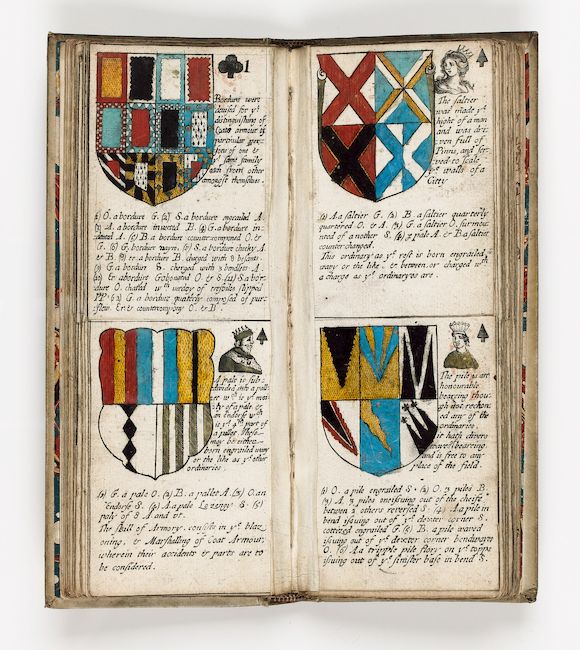 1
Bordures were
devised for yͤ
distinguishing of
Coate armour of
particular per=
sons of one &
yͤ same family
each from other
amongst themselves.
(1) O. a bordure G. (2) S. a bordure engrailed A.
(3) A. a bordure invected B. (4) G. a bordure in=
dented A. (5) B. a bordure countercomponed O. &
G. (6) G. bordure varry. (7) S. a bordure checky A.
& B. (8) a bordure B. charged with 8 besants.
(9) G. a bordure S. charged with 3 bendlets A.
(10) Er. a bordure Gobonated O. & S. (11) S. a bor=
dure O. charged wᵗʰ verdoy of trefoiles slipped
PPʳ (12) G. a bordure quaterly composed of pur=
flew Er. & countercompony O. & B.
The saltier
was made yͤ
hight of a man
and was dri=
ven full of
Pinns, and ser=
ved to scale
yͤ walls of a
Citty
(1) A. a saltier G. (2) B. a saltier quarterly
quartered O. & A. (3) G. a saltier O. surmou=
nted of another S. (4) p pale A. & B. a saltier
counterchanged.
This ordinary as yͤ rest is born engrailed,
wavy or the like, & between, or charged wᵗʰ
a charge as yͤ ordinaryes are.
A pale is sub=
divided into a pall=
et wᶜʰ is yͤ moi=
ty of a pale &
an endorse wᶜʰ
is yͤ 4ᵗʰ part of
a pallet. These
may be either
born engrailed wavy
or the like as yͤ other
ordinaries
(1) G. a pale O. (2) B. a pallet A. (3) O. an
endorse S. (4) A. a pale Lozengy S. (5)
pale of 8 A. and vt.
The skill of Armory consists in yͤ blaz=
oning, & Marshalling of Coat Armour,
wherein their accidents & parts are to
be considered.
The pile is an
honourable
bearing thou=
gh not reckon=
ed any of the
ordinaries
it hath divers
wayes bearing
and is free to any
place of the field.
(1) O. a pile engrailed S. (2) O. 3 piles B.
(3) A. 3 piles one issuing out of the cheife
between 2 others reversed S. (4) A. a pile in
bend issuing out of yͤ dexter corner S.
cotticed engrailed G. (5) B. a pile waved
issuing out of yͤ dexter corner bendwayes
O. (6) A. a tripple pile flory on yͤ topps
issuing out of yͤ sinister base in bend S.